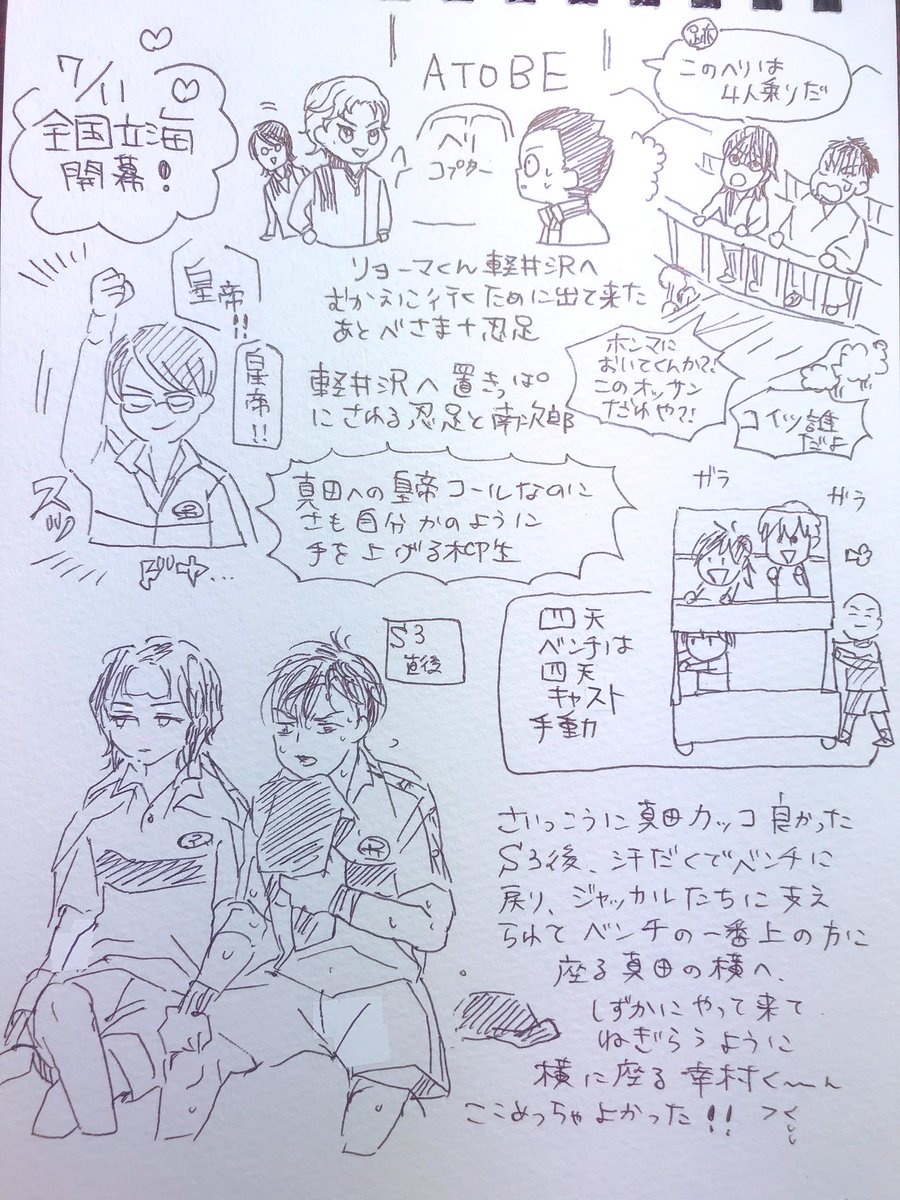 7/11
全国立海
開幕!
ATOBE
ヘリ
コプター
跡
このヘリは
4人乗りだ
リョーマくん軽井沢へ
むかえに行くために出て来た
あとべさま+忍足
軽井沢へ置きっぱ
にされる忍足と南次郎
ホンマに
おいてくんか?!
このオッサン
だれや?!
コイツ誰
だよ
皇帝!!
皇帝!!
スッ
ドヤ...
真田への皇帝コールなのに
さも自分かのように
手を上げる柳生
ガラ
ガラ
四天
ベンチは
四天
キャスト
手動
S3
直後
さいっこうに真田カッコ良かった
S3後、汗だくでベンチに
戻り、ジャッカルたちに支え
られてベンチの一番上の方に
座る真田の横へ、
しずかにやって来て
ねぎらうように
横に座る幸村く~ん
ここめっちゃよかった!!